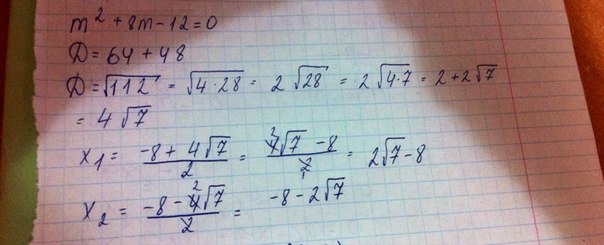 m² + 8m - 12 = 0
D = 64 + 48
D = √112 = √4·28 = 2√28 = 2√4·7 = 2+2√7
= 4√7
x₁ = (-8 + 4√7)/2 = (4√7 - 8)/2 = 2√7 - 8
x₂ = (-8 - 4√7)/2 = -8 - 2√7